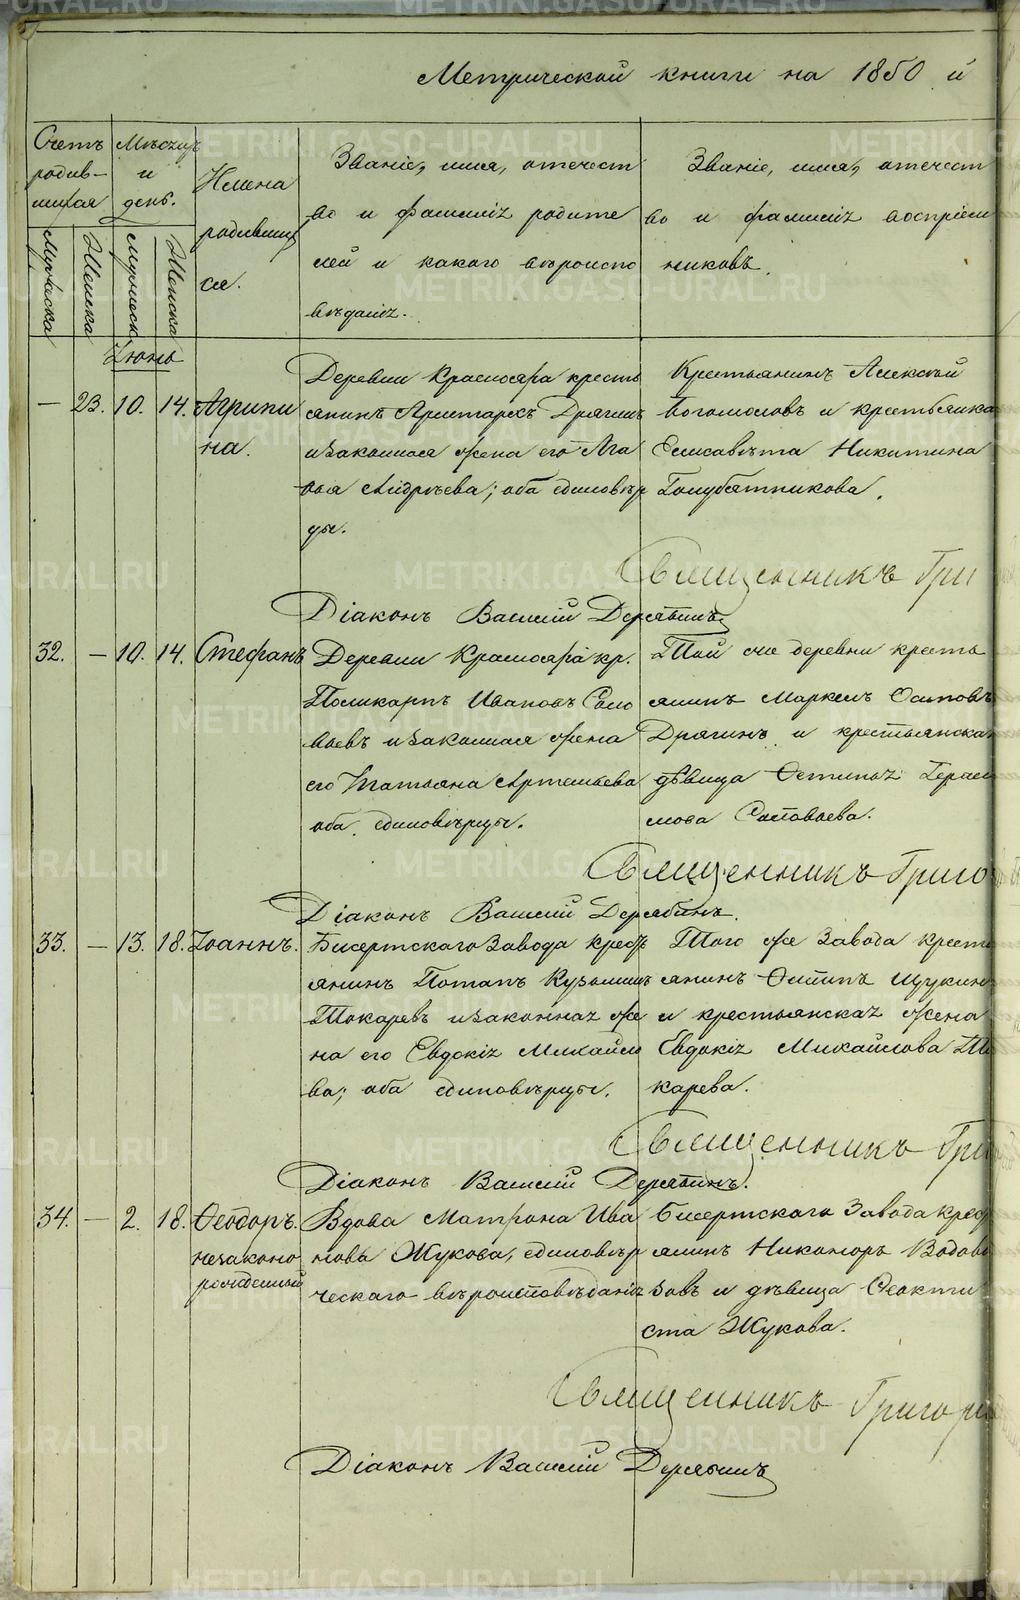 Метрической книги на 1850 й
Счетъ родив-шихся
Мѣсяцъ и день.
Имена родивших ся.
Званіе, имя, отечест
во и фамилія родите
лей и какого вѣроиспо
вѣданія.
Званіе, имя, отечест
во и фамилія воспріем
никовъ.
Мужеска
Женска
Мужеск
Женска
Іюнь
— 23. 10. 14. Агрипи
на.
Деревни Краснояра кресть
янинъ Аристархъ Дрягинъ
и законная жена его Ага
ѳія Андрѣева; оба единовѣр
цы.
Крестьянинъ Алексѣй
Богомоловъ и крестьянка
Елисавѣта Никитина
Голубятникова.
Священникъ Гри
Діаконъ Василій Дерябинъ.
32. — 10. 14. Стефанъ
Деревни Краснояра кр.
Поликарпъ Ивановъ Соло
вьевъ и законная жена
его Татьяна Артемьева
оба единовѣрцы.
Той же деревни кресть
янинъ Маркелъ Осиповъ
Дрягинъ и крестьянская
дѣвица Ѳстинья Герас
мова Соловьева.
Священникъ Григо
Діаконъ Василій Дерябинъ.
33. — 13. 18. Іоаннъ.
Бисертскаго завода крест
янинъ Потапъ Кузьминъ
Токаревъ и законная же
на его Евдокія Михайло
ва; оба единовѣрцы.
Того же завода крест
янинъ Осипъ Щукинъ
и крестьянская жена
Евдокія Михайлова То
карева.
Священникъ Гри
Діаконъ Василій Дерябинъ.
34. — 2. 18. Ѳеодоръ.
незаконо
рожденный
Вдова Матрона Ива
нова Жукова, единовѣр
ческаго вѣроисповѣданія
Бисертскаго завода крес
янинъ Никаноръ Водово
зовъ и дѣвица Ѳеокти
ста Жукова.
Священникъ Григорі
Діаконъ Василій Дерябинъ
METRIKI.GASO-URAL.RU